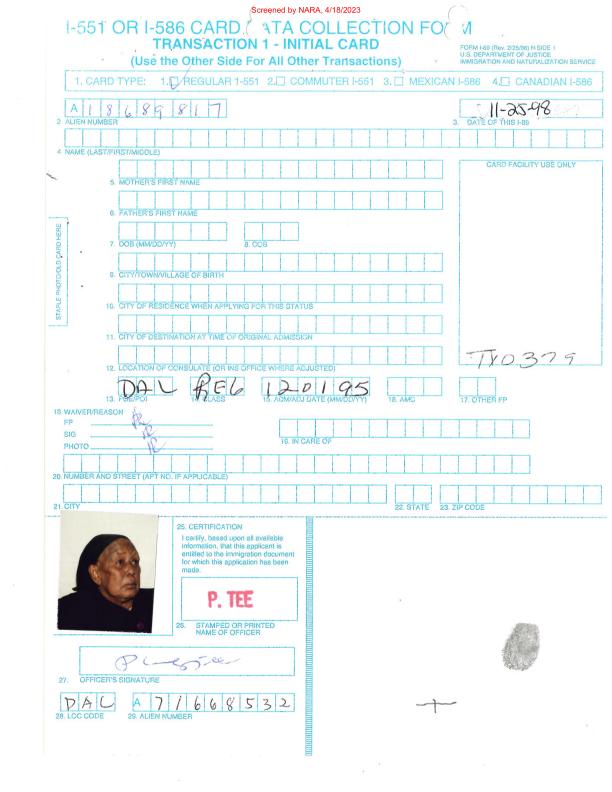 Screened by NARA, 4/18/2023
I-551 OR I-586 CARD DATA COLLECTION FORM
TRANSACTION 1 - INITIAL CARD
(Use the Other Side For All Other Transactions)
FORM I-89 (Rev. 2/25/96) N SIDE 1
U.S. DEPARTMENT OF JUSTICE
IMMIGRATION AND NATURALIZATION SERVICE
1. CARD TYPE: 1. REGULAR 1-551 2. COMMUTER I-551 3. MEXICAN I-586 4. CANADIAN I-586
A 18689817
11-25-98
2 ALIEN NUMBER
3. DATE OF THIS I-89
4. NAME (LAST/FIRST/MIDDLE)
CARD FACILITY USE ONLY
5. MOTHER'S FIRST NAME
6. FATHER'S FIRST NAME
STAPLE PHOTO/OLD CARD HERE
7. DOB (MM/DD/YY) 8. COB
9. CITY/TOWN/VILLAGE OF BIRTH
10. CITY OF RESIDENCE WHEN APPLYING FOR THIS STATUS
11. CITY OF DESTINATION AT TIME OF ORIGINAL ADMISSION
12. LOCATION OF CONSULATE (OR INS OFFICE WHERE ADJUSTED)
DAL RE6 120195
13. POE/POI 14. CLASS 15. ADM/ADJ DATE (MM/DD/YY) 16. AMC 17. OTHER FP
18. WAIVER/REASON
FP
SIG
PHOTO
19. IN CARE OF
20. NUMBER AND STREET (APT NO. IF APPLICABLE)
21. CITY 22. STATE 23. ZIP CODE
25. CERTIFICATION
I certify, based upon all available
information, that this applicant is
entitled to the immigration document
for which this application has been
made.
P. TEE
26. STAMPED OR PRINTED
NAME OF OFFICER
27. OFFICER'S SIGNATURE
DAL A 71668532
28. LOC CODE 29. ALIEN NUMBER